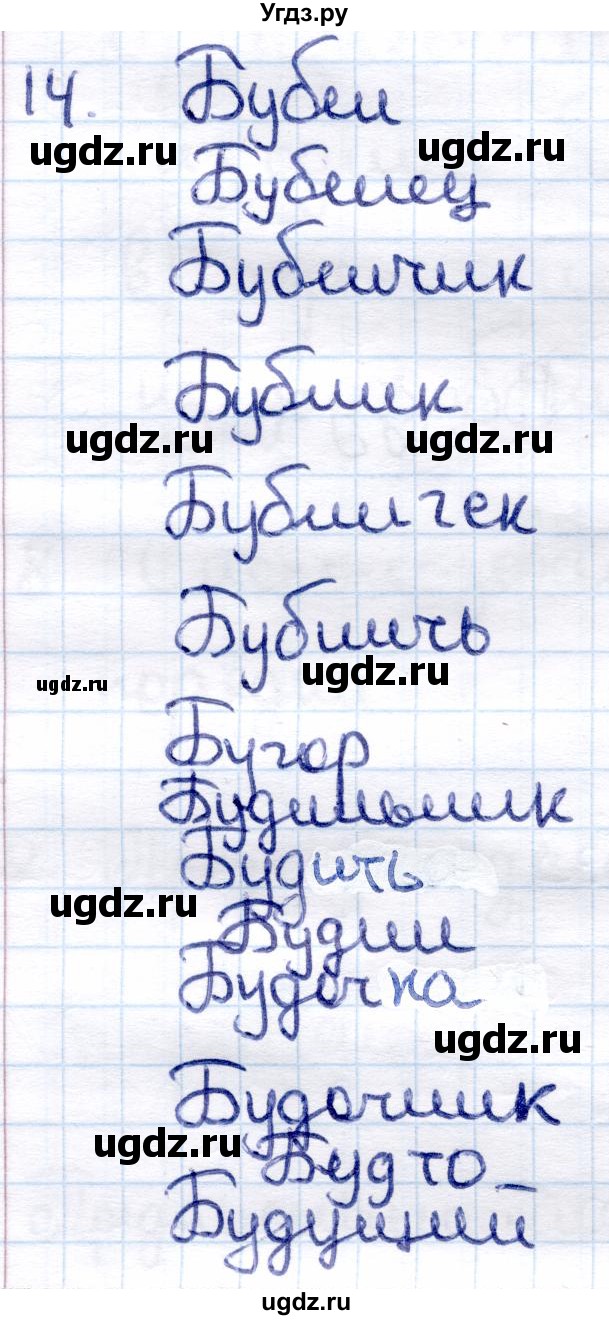 Угдз.ру
14. Бубен
ugdz.ru ugdz.ru
Бубенец
Бубенчик
Бублик
ugdz.ru ugdz.ru
Бубличек
Бубнить
ugdz.ru ugdz.ru
Бугор
Будильник
Будить
ugdz.ru
Будни
Будочка
ugdz.ru
Будочник
ugdz.ru
Будто
Будущий
ugdz.ru